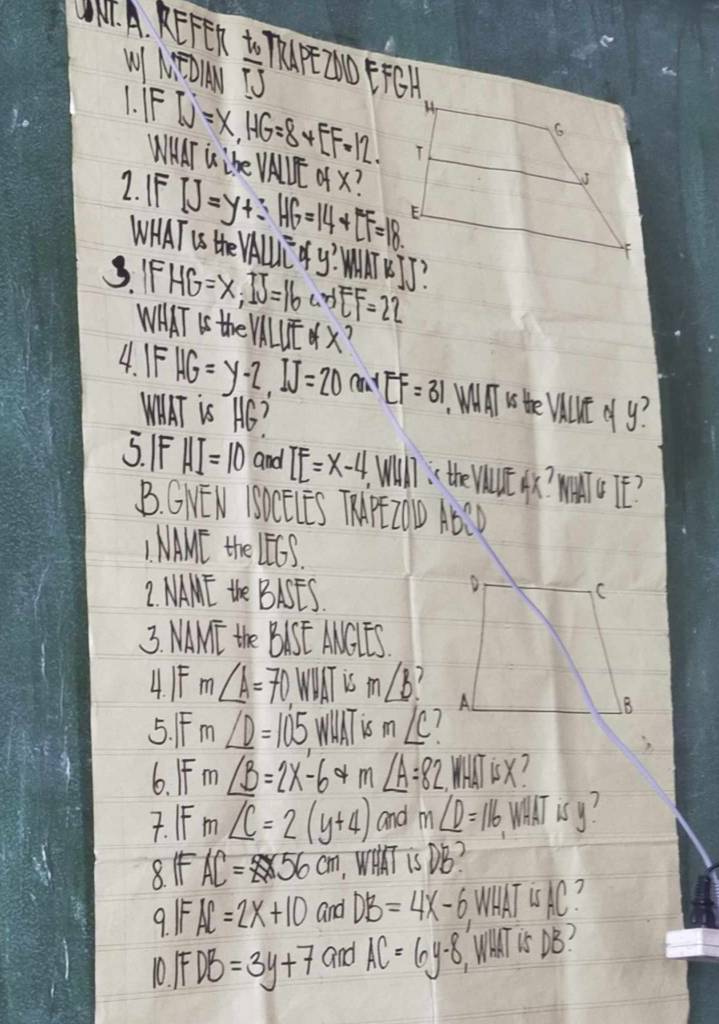 CONT. A. REFER to TRAPEZOID EFGH
W/ MEDIAN IJ
1. IF IJ = X, HG=8 & EF=12.
WHAT is the VALUE of X?
2. IF IJ = y+3 HG=14 & EF=18.
WHAT is the VALUE of y? WHAT is IJ?
3. IF HG=X, IJ=16 and EF=22
WHAT is the VALUE of X?
4. IF HG = y-2, IJ=20 and EF=31, WHAT is the VALUE of y?
WHAT is HG?
5. IF HI=10 and IE=X-4, WHAT is the VALUE of X? WHAT is IE?
B. GIVEN ISOCELES TRAPEZOID ABCD
1. NAME the LEGS.
2. NAME the BASES.
3. NAME the BASE ANGLES.
4. IF m ∠A=70, WHAT is m ∠B?
5. IF m ∠D=105, WHAT is m ∠C?
6. IF m ∠B=2X-6 & m ∠A=82, WHAT is X?
7. IF m ∠C = 2 (y+4) and m ∠D=116, WHAT is y?
8. IF AC = 56 cm, WHAT is DB?
9. IF AC=2X+10 and DB= 4X-6, WHAT is AC?
10. IF DB=3y+7 and AC= 6y-8, WHAT is DB?
H
G
I
J
E
F
D
C
A
B